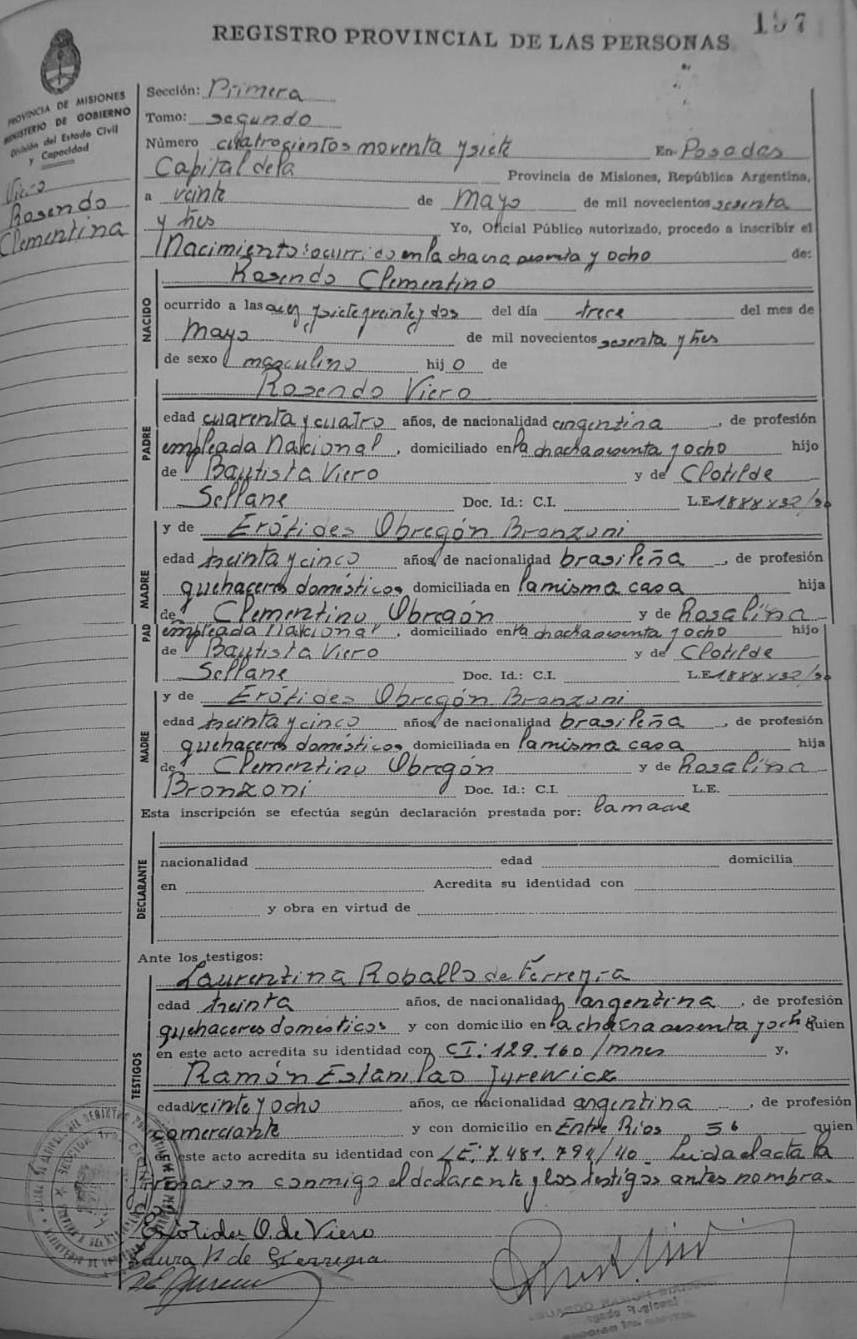 157
REGISTRO PROVINCIAL DE LAS PERSONAS
PROVINCIA DE MISIONES
MINISTERIO DE GOBIERNO
División del Estado Civil
y Capacidad
Viero
Rosendo
Clementina
Sección: Primera
Tomo: segundo
Número cuatrocientos noventa y siete En Posadas
Capital de la Provincia de Misiones, República Argentina,
a veinte de Mayo de mil novecientos sesenta
y tres Yo, Oficial Público autorizado, procedo a inscribir el
Nacimiento: ocurrido en la chacra y ocho de:
Rosendo Clementino
NACIDO
ocurrido a las y dos del día trece del mes de
Mayo de mil novecientos sesenta y tres
de sexo masculino hijo de
Rosendo Viero
PADRE
edad cuarenta y cuatro años, de nacionalidad argentina, de profesión
empleada Nacional, domiciliado en la chacra y ocho hijo
de Bautista Viero y de Clotilde
Sellane Doc. Id.: C.I. L.E.
y de Erótides Obregón Bronzoni
MADRE
edad treinta y cinco años, de nacionalidad brasileña, de profesión
quehaceres domésticos domiciliada en la misma casa hija
de Clementino Obregón y de Rosalina
PAD
empleada Nacional, domiciliado en la chacra y ocho hijo
de Bautista Viero y de Clotilde
Sellane Doc. Id.: C.I. L.E.
y de Erótides Obregón Bronzoni
MADRE
edad treinta y cinco años, de nacionalidad brasileña, de profesión
quehaceres domésticos domiciliada en la misma casa hija
de Clementino Obregón y de Rosalina
Bronzoni Doc. Id.: C.I. L.E.
Esta inscripción se efectúa según declaración prestada por: la madre
DECLARANTE
nacionalidad edad domicilia
en Acredita su identidad con
y obra en virtud de
Ante los testigos:
TESTIGOS
Laurentina Roballo de Ferreyra
edad treinta años, de nacionalidad argentina, de profesión
quehaceres domésticos y con domicilio en la chacra y ocho quien
en este acto acredita su identidad con CI: 129.160/mnes y,
Ramón Estanislao Jurewicz
edad veinte y ocho años, de nacionalidad argentina, de profesión
comerciante y con domicilio en Entre Ríos 56 quien
en este acto acredita su identidad con LE: 7.481.794/40 Leída el acta la
firmaron conmigo el declarante y los testigos antes nombra.
Erótides O. de Viero
de Ferreyra